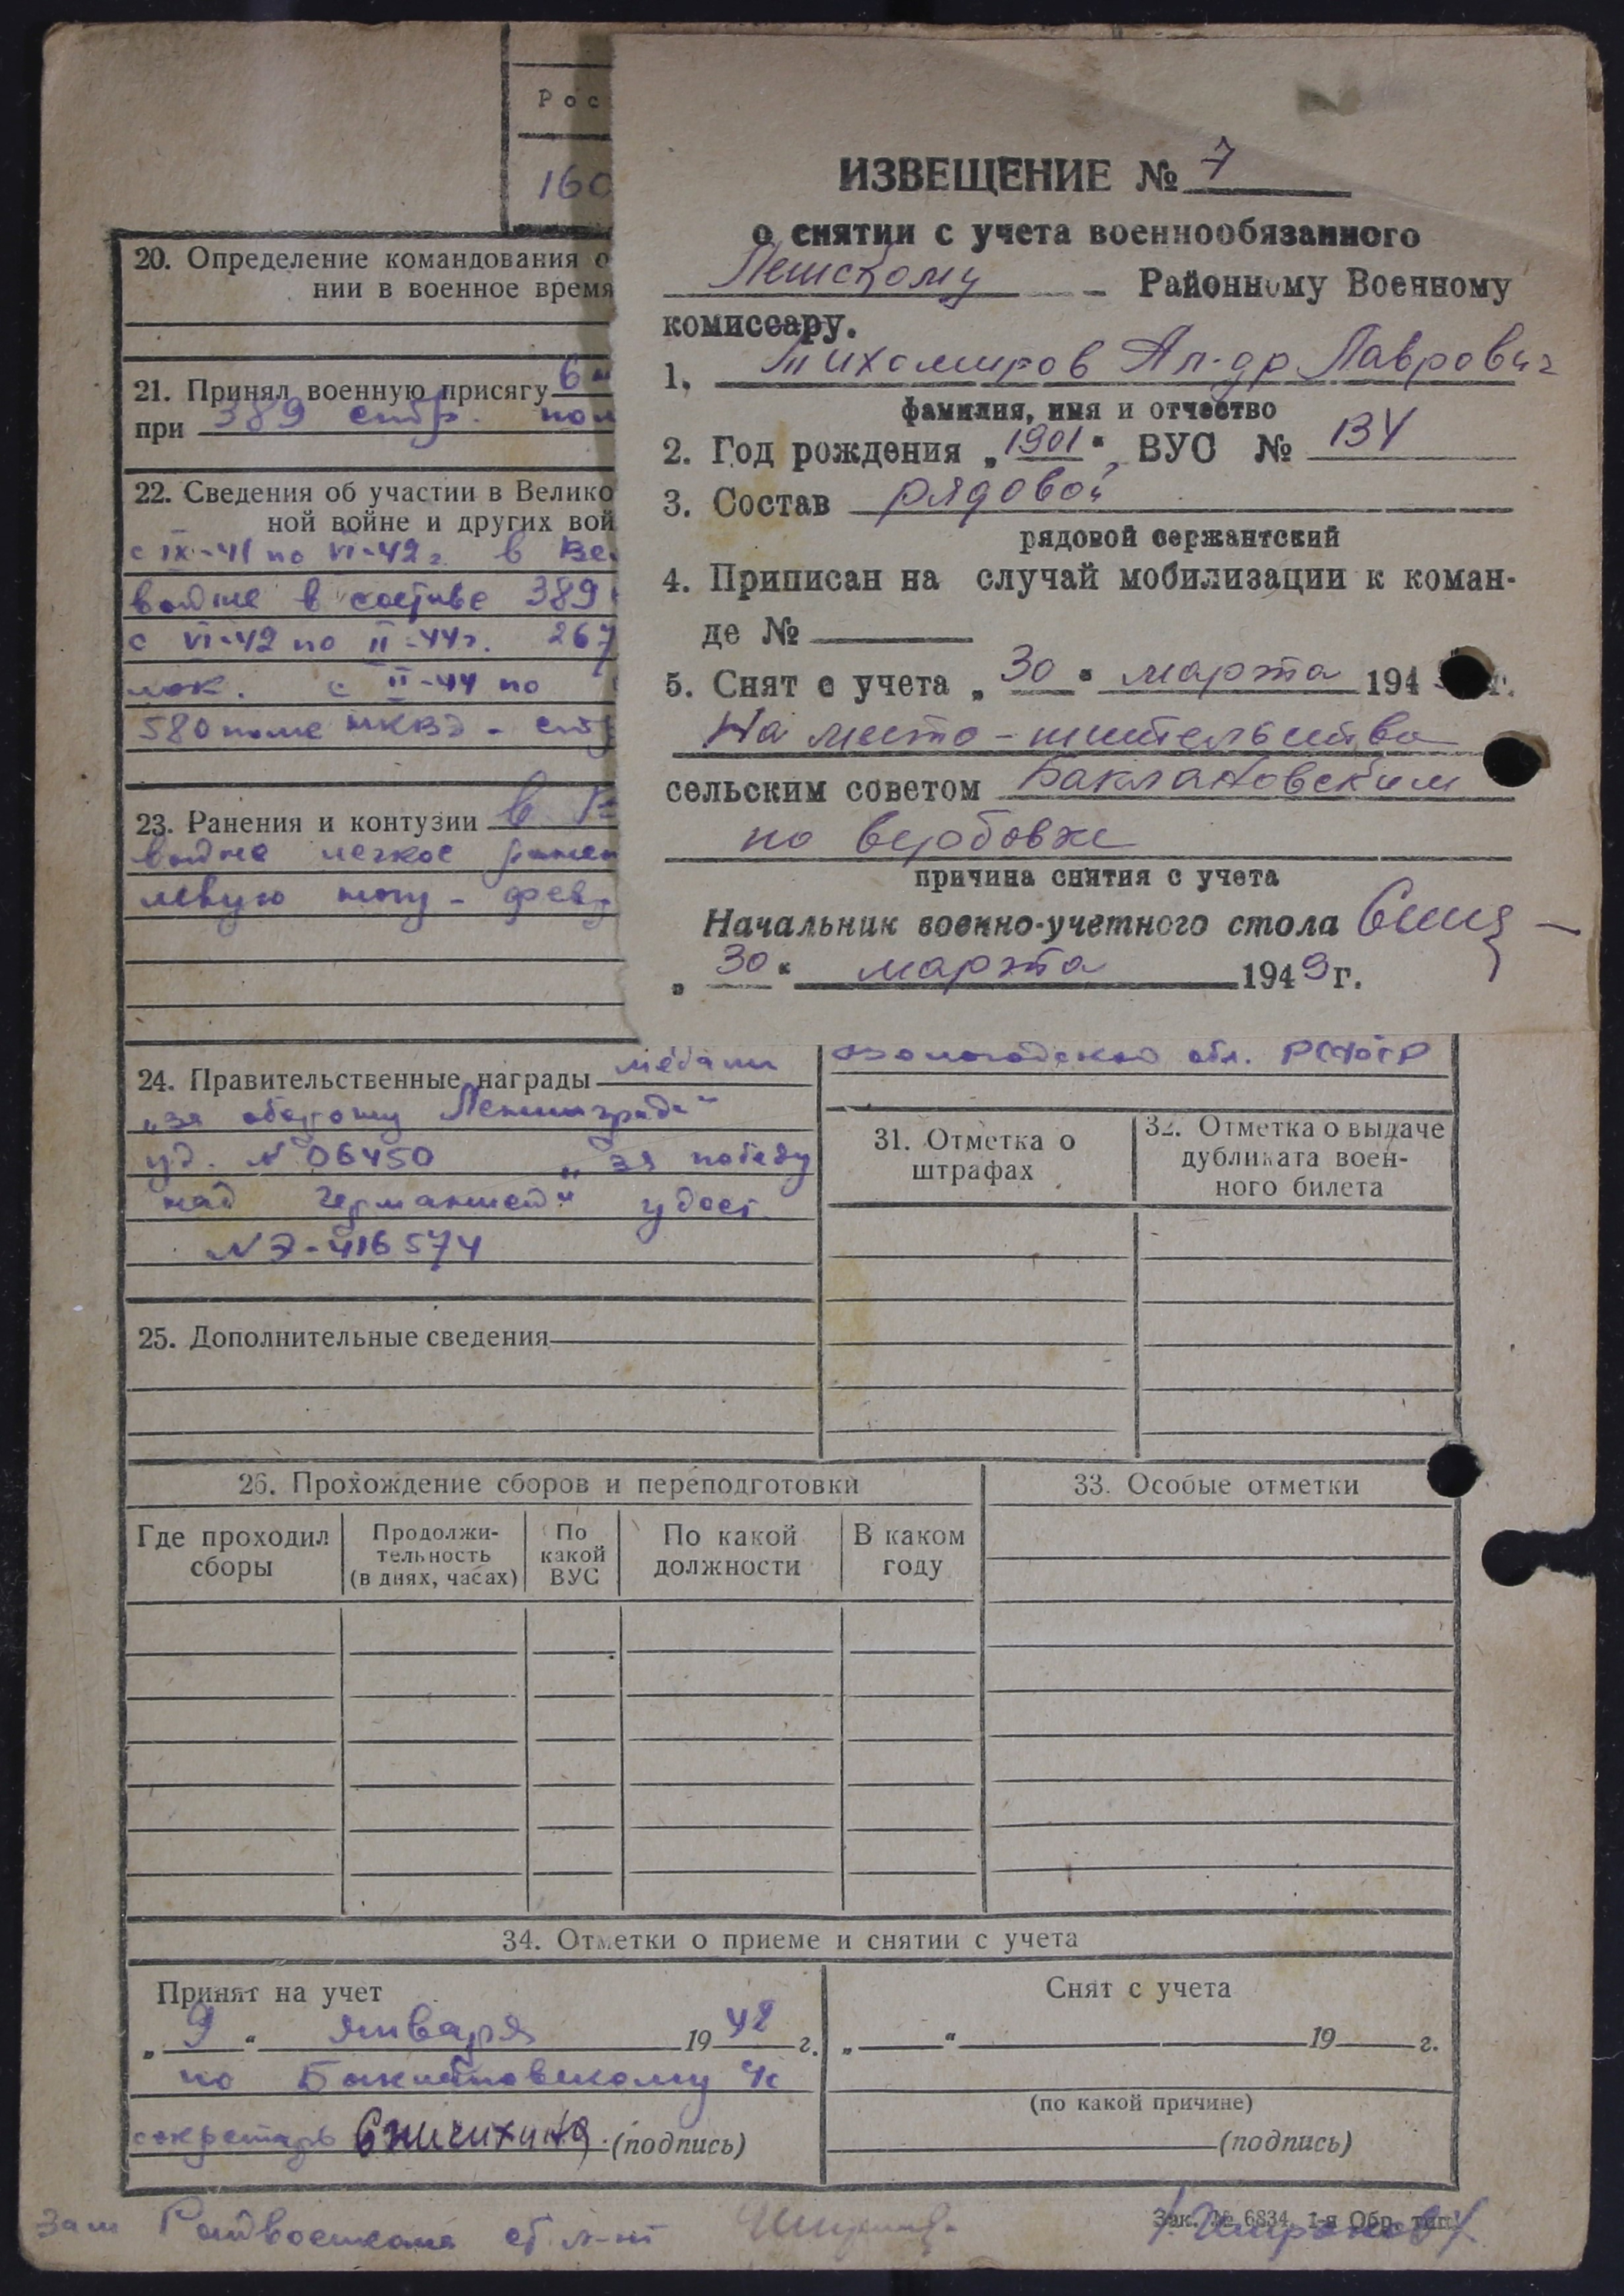 Рос
160
ИЗВЕЩЕНИЕ № 7
о снятии с учета военнообязанного
Районному Военному
комиссару.
1. Тихомиров Ал-др Лаврович
фамилия, имя и отчество
2. Год рождения „1901“, ВУС № 134
3. Состав рядовой
рядовой сержантский
4. Приписан на случай мобилизации к коман-
де №
5. Снят с учета „30“ марта 194 г.
На место-жительства
сельским советом Баклановским
по вербовке
причина снятия с учета
Начальник военно-учетного стола
„30“ марта 1949 г.
20. Определение командования о
нии в военное время
21. Принял военную присягу 6
при 389 стр. пол
22. Сведения об участии в Велико
ной войне и других вой
с IX-41 по VI-42 г. в Ве
войне в составе 389
с VI-42 по II-44 г. 267
с II-44 по
580 полк НКВД - ст
23. Ранения и контузии в
войне легкое ранен
левую ногу - фев
24. Правительственные награды медали
„за оборону Ленинграда“
уд. N 06450 „за победу
над Германией“ удост.
N Э-416574
25. Дополнительные сведения
Вологодской обл. РСФСР
31. Отметка о
штрафах
32. Отметка о выдаче
дубликата воен-
ного билета
26. Прохождение сборов и переподготовки
Где проходил
сборы
Продолжи-
тельность
(в днях, часах)
По
какой
ВУС
По какой
должности
В каком
году
33. Особые отметки
34. Отметки о приеме и снятии с учета
Принят на учет
„9“ января 1942 г.
по
секретарь (подпись)
Снят с учета
„ “ 19 г.
(по какой причине)
(подпись)
Зам Райвоенкома ст. л-нт
Зак. № 6834. 1-я Обр. тип.